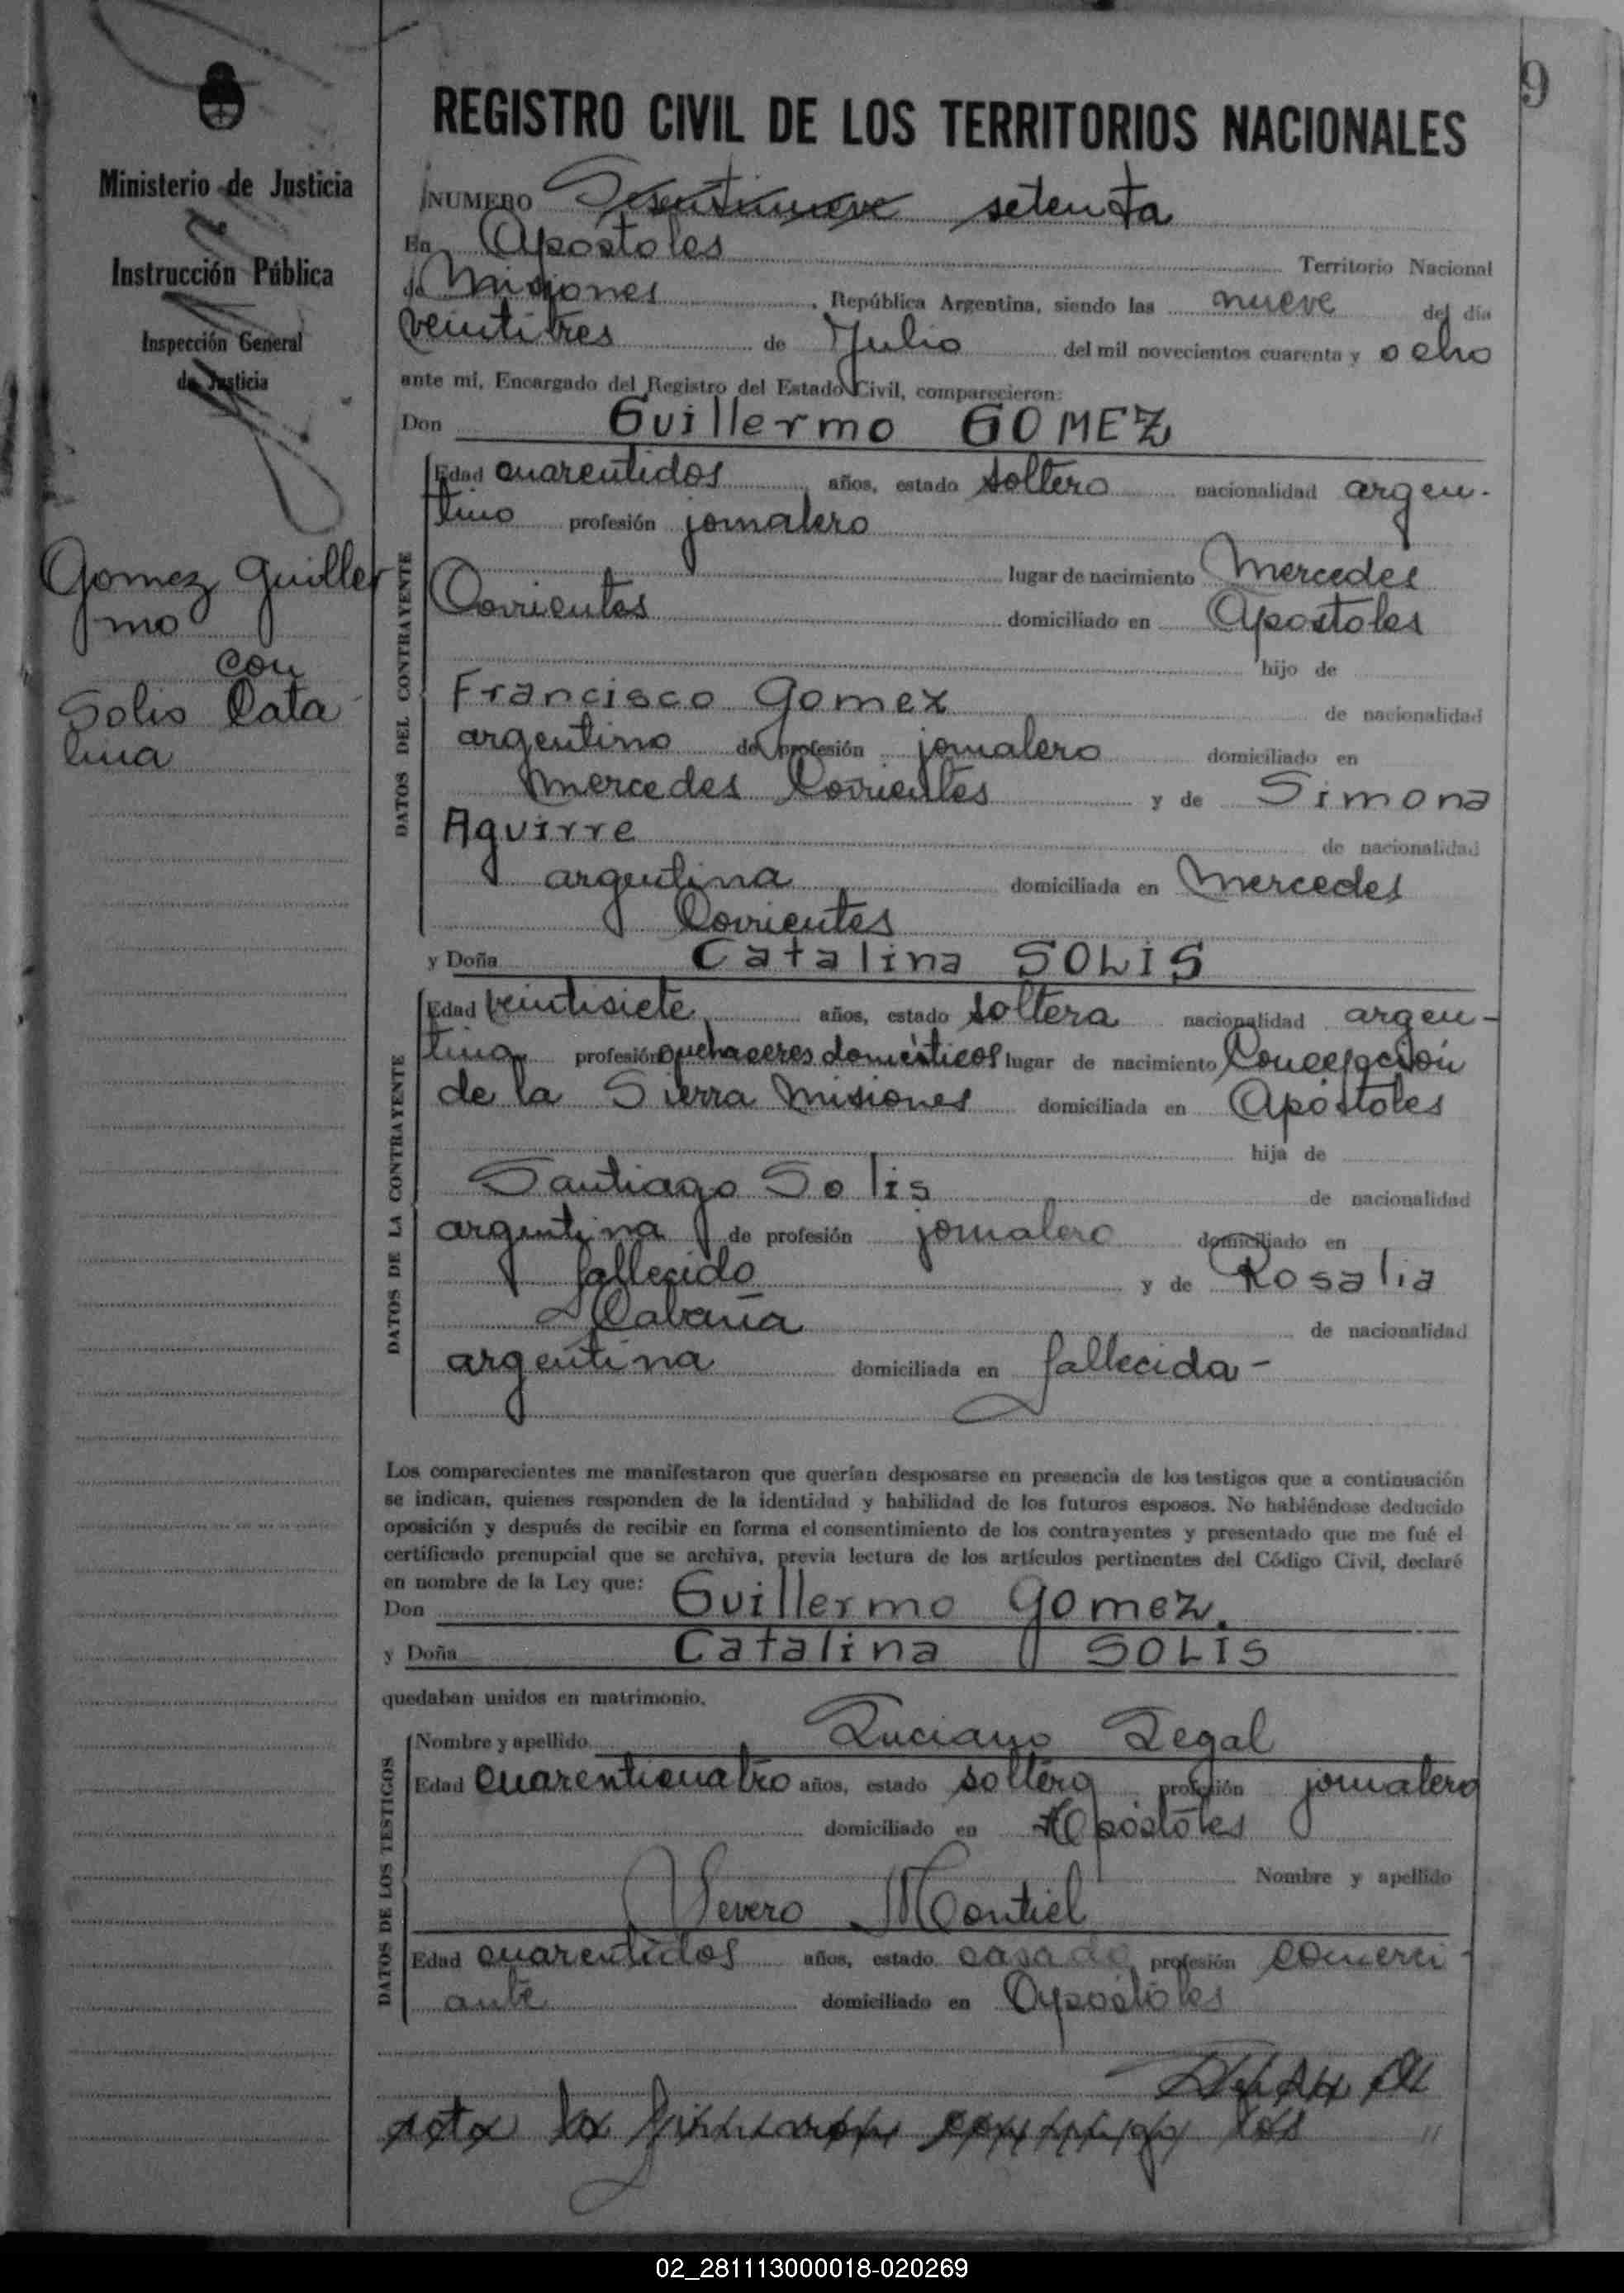 9
REGISTRO CIVIL DE LOS TERRITORIOS NACIONALES
Ministerio de Justicia
e
Instrucción Pública
Inspección General
de Justicia
Gomez Guiller
mo
con
Solis Cata
lina
NUMERO Sesentinueve setenta
En Apostoles Territorio Nacional
de Misiones, República Argentina, siendo las nueve del día
veintitres de Julio del mil novecientos cuarenta y ocho
ante mi, Encargado del Registro del Estado Civil, comparecieron:
Don Guillermo GOMEZ
DATOS DEL CONTRAYENTE
Edad cuarentidos años, estado soltero nacionalidad argen-
tino profesión jornalero
lugar de nacimiento Mercedes
Corrientes domiciliado en Apostoles
hijo de
Francisco Gomez de nacionalidad
argentino de profesión jornalero domiciliado en
Mercedes Corrientes y de Simona
Aguirre de nacionalidad
argentina domiciliada en Mercedes
Corrientes
y Doña Catalina SOLIS
DATOS DE LA CONTRAYENTE
Edad veintisiete años, estado soltera nacionalidad argen-
tina profesión quehaceres domésticos lugar de nacimiento Concepción
de la Sierra Misiones domiciliada en Apóstoles
hija de
Santiago Solis de nacionalidad
argentina de profesión jornalero domiciliado en
fallecido y de Rosalia
Cabaña de nacionalidad
argentina domiciliada en fallecida-
Los comparecientes me manifestaron que querían desposarse en presencia de los testigos que a continuación
se indican, quienes responden de la identidad y habilidad de los futuros esposos. No habiéndose deducido
oposición y después de recibir en forma el consentimiento de los contrayentes y presentado que me fué el
certificado prenupcial que se archiva, previa lectura de los artículos pertinentes del Código Civil, declaré
en nombre de la Ley que:
Don Guillermo Gomez.
y Doña Catalina SOLIS
quedaban unidos en matrimonio.
DATOS DE LOS TESTIGOS
Nombre y apellido Luciano Legal
Edad cuarenticuatro años, estado soltero profesión jornalero
domiciliado en Apóstoles
Nombre y apellido
Severo Montiel
Edad cuarentidos años, estado casado profesión comerci-
ante domiciliado en Apóstoles
acta la firmaron conmigo los "
02_281113000018-020269